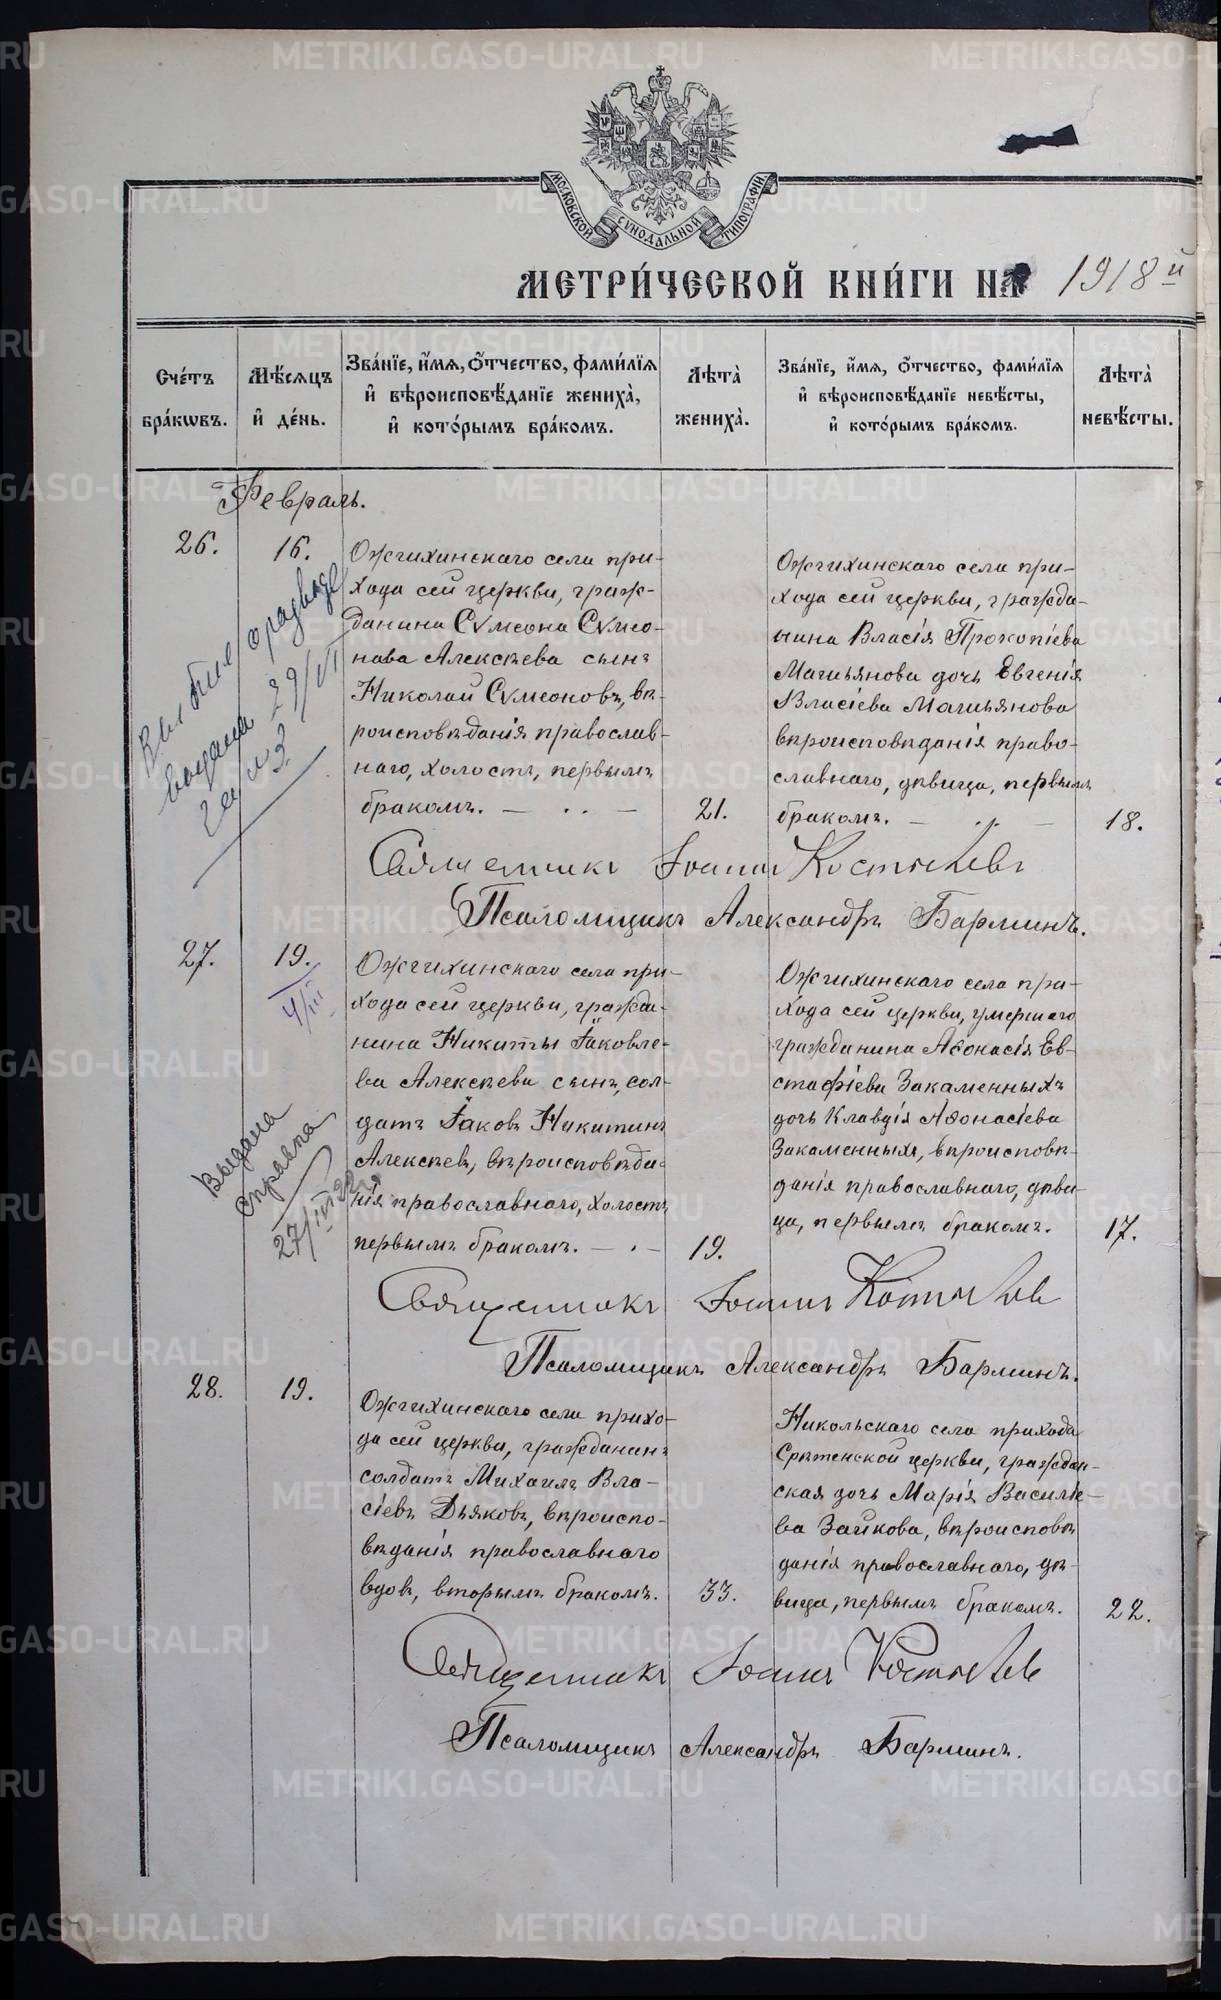 МОСКОВСКОЙ СΥНОДАЛЬНОЙ ТИПОГРАФІИ.
МЕТРИ́ЧЕСКОЙ КНИ́ГИ НА 1918 й
Сче́тъ бра́кѡвъ.
Мѣ́сѧцъ и҆ де́нь.
Зва́нїе, и҆́мѧ, ѻ҆́тчество, фами́лїѧ и҆ вѣроисповѣ́данїе жениха̀, и҆ кото́рымъ бра́комъ.
Лѣта̀ жениха̀.
Зва́нїе, и҆́мѧ, ѻ҆́тчество, фами́лїѧ и҆ вѣроисповѣ́данїе невѣ́сты, и҆ кото́рымъ бра́комъ.
Лѣта̀ невѣ́сты.
Февраль.
26.
16.
Ожгихинскаго села при-
хода сей церкви, граж-
данина Сѵмеона Сѵмео-
нова Алексѣева сынъ
Николай Сѵмеоновъ, вѣ-
роисповѣданія православ-
наго, холостъ, первымъ
бракомъ.
21.
Ожгихинскаго села при-
хода сей церкви, гражда-
нина Власія Прокопіева
Матьянова дочь Евгенія
Власіева Матьянова
вѣроисповѣданія право-
славнаго, дѣвица, первымъ
бракомъ.
18.
о разводе
выдана 29/VI
Священникъ Іоаннъ Костылевъ
Псаломщикъ Александръ Барминъ.
27.
19.
4/III
Выдана
справка
27/III
Ожгихинскаго села при-
хода сей церкви, гражда-
нина Никиты Іаковле-
ва Алексѣева сынъ, сол-
датъ Іаковъ Никитинъ
Алексѣевъ, вѣроисповѣда-
нія православнаго, холостъ
первымъ бракомъ.
19.
Ожгихинскаго села при-
хода сей церкви, умершаго
гражданина Аѳонасія Ев-
стафіева Закаменныхъ
дочь Клавдія Аѳонасіева
Закаменныхъ, вѣроисповѣ-
данія православнаго, дѣви-
ца, первымъ бракомъ.
17.
Священникъ Іоаннъ Костылевъ
Псаломщикъ Александръ Барминъ.
28.
19.
Ожгихинскаго села прихо-
да сей церкви, гражданинъ
солдатъ Михаилъ Вла-
сіевъ Дьяковъ, вѣроиспо-
вѣданія православнаго
вдовъ, вторымъ бракомъ.
33.
Никольскаго села прихода
Срѣтенской церкви, граждан-
ская дочь Марія Василіе-
ва Зайкова, вѣроисповѣ
данія православнаго, дѣ-
вица, первымъ бракомъ.
22.
Священникъ Іоаннъ Костылевъ
Псаломщикъ Александръ Барминъ.
METRIKI.GASO-URAL.RU